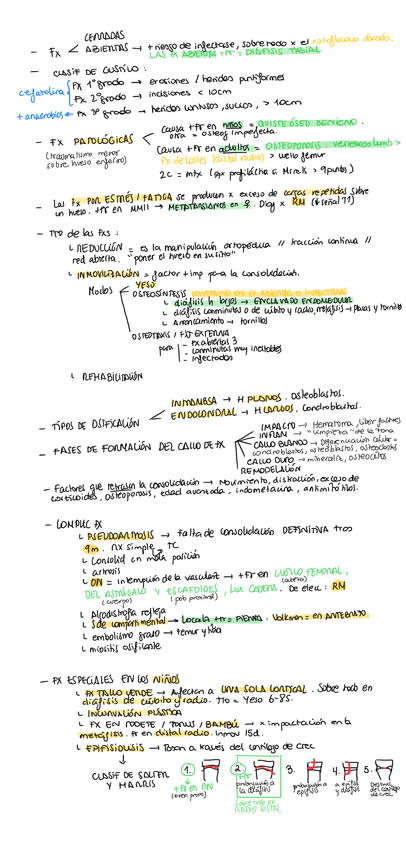 CERRADAS
- Fx < ABIERTAS → + riesgo de infectarse, sobre todo x el estafilococo dorado.
LAS fx ABIERTAS + fr = DIÁFISIS TIBIAL
- CLASIF DE GUSTILO :
Fx 1º grado → erosiones / heridas puntiformes
cefazolina
Fx 2º grado → incisiones < 10cm
+ anaerobios ← Fx 3º grado → heridas contusas, sucias, > 10cm
causa + fr en niños = QUISTE ÓSEO BENIGNO.
otra = osteog imperfecta.
- FX PATOLÓGICAS
(traumatismo menor
sobre hueso enfermo)
causa + fr en adultos = OSTEOPOROSIS: vertebrales lumb >
Fx de colles (distal radio) > cuello femur
2C = mtx (qx profiláctica si Mirels > 9puntos)
- Las fx POR ESTRÉS / FATIGA se producen x exceso de cargas repetidas sobre
un hueso. + fr en MMII → METATARSIANOS en ♀. Diag x RM (↓señal T1)
- TTO de las fxs :
↳ REDUCCIÓN = es la manipulación ortopédica // tracción continua //
red abierta. "poner el hueso en su sitio"
↳ INMOVILIZACIÓN = factor + imp para la consolidación.
Modos
YESO
OSTEOSÍNTESIS CONTRAIND EN FX ABIERTAS O INFECTADAS
↳ diáfisis h largos → ENCLAVADO ENDOMEDULAR
↳ diáfisis conminutas o de cúbito y radio, metáfisis → placas y tornillo
↳ Arrancamiento → tornillos
OSTEOTAXIS / FIJ EXTERNA
para
- fx abiertas 3
- conminutas muy inestables
- infectados
↳ REHABILITACIÓN
- TIPOS DE OSIFICACIÓN
INTRAMBSA → H PLANOS. Osteoblastos.
ENDOCONDRAL → H LARGOS. Condroblastos.
- FASES DE FORMACIÓN DEL CALLO DE FX
IMPACTO → Hematoma, liber factores
INFLAM → "limpieza" de la zona
CALLO BLANDO → Diferenciación celular =
condroblastos, osteoblastos, osteoclastos
CALLO DURO → mineraliz, osteocitos
REMODELACIÓN
- Factores que retrasan la consolidación → Movimiento, distracción, exceso de
corticoides, osteoporosis, edad avanzada, indometacina, antimitóticos.
- COMPLIC FX
↳ PSEUDOARTROSIS → falta de consolidación DEFINITIVA tras
9m. RX simple, TC
↳ Consolid en mala posición
↳ artrosis
↳ ON = interrupción de la vasculariz → + fr en CUELLO FEMORAL,
(cabeza)
DEL ASTRÁGALO Y ESCAFOIDES, LUX CADERA. De elecc: RM
(cuerpo) (polo proximal)
↳ Algodistrofia refleja
↳ Sde compartimental → Localiz + fr = PIERNA. Volkmann = en ANTEBRAZO
↳ embolismo graso → femur y tibia
↳ miositis osificante
- FX ESPECIALES EN LOS NIÑOS
↳ FX TALLO VERDE → Afectan a UNA SOLA CORTICAL. Sobre todo en
diáfisis de cúbito y radio. Tto = Yeso 6-8s.
↳ INCURVACIÓN PLÁSTICA
↳ FX EN RODETE / TORUS / BAMBÚ → x impactación en la
metáfisis. fr en distal radio. Inmov 15d.
↳ EPIFISIOLISIS → Pasan a través del cartílago de crec
CLASIF DE SALTER
Y HARRIS
1. 2. 3. 4. 5.
+ fr en RN
(buen prono)
+ FR
prolongación a
la diáfisis
sobre todo en
RADIO DISTAL
prolongación a
epífisis
a epífisis
y diáfisis
Destrucc
del cartílago
de crec